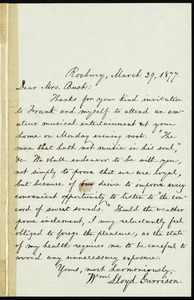 Roxbury, March 29, 1877.
Dear Mrs. Bush:
Thanks for your kind invitation
to Frank and myself to attend an am-
ateur musical entertainment at your
home on Monday evening next. "The
man that hath not music in his soul,"
&c. We shall endeavor to be with you,
not simply to prove that we are loyal,
but because of our desire to improve every
convenient opportunity to listen to the "con-
cord of sweet sounds." Should the weather
prove inclement, I may reluctantly feel
obliged to forego the pleasure, as the state
of my health requires me to be careful to
avoid any unnecessary exposure.
Yours, most harmoniously,
Wm. Lloyd Garrison.